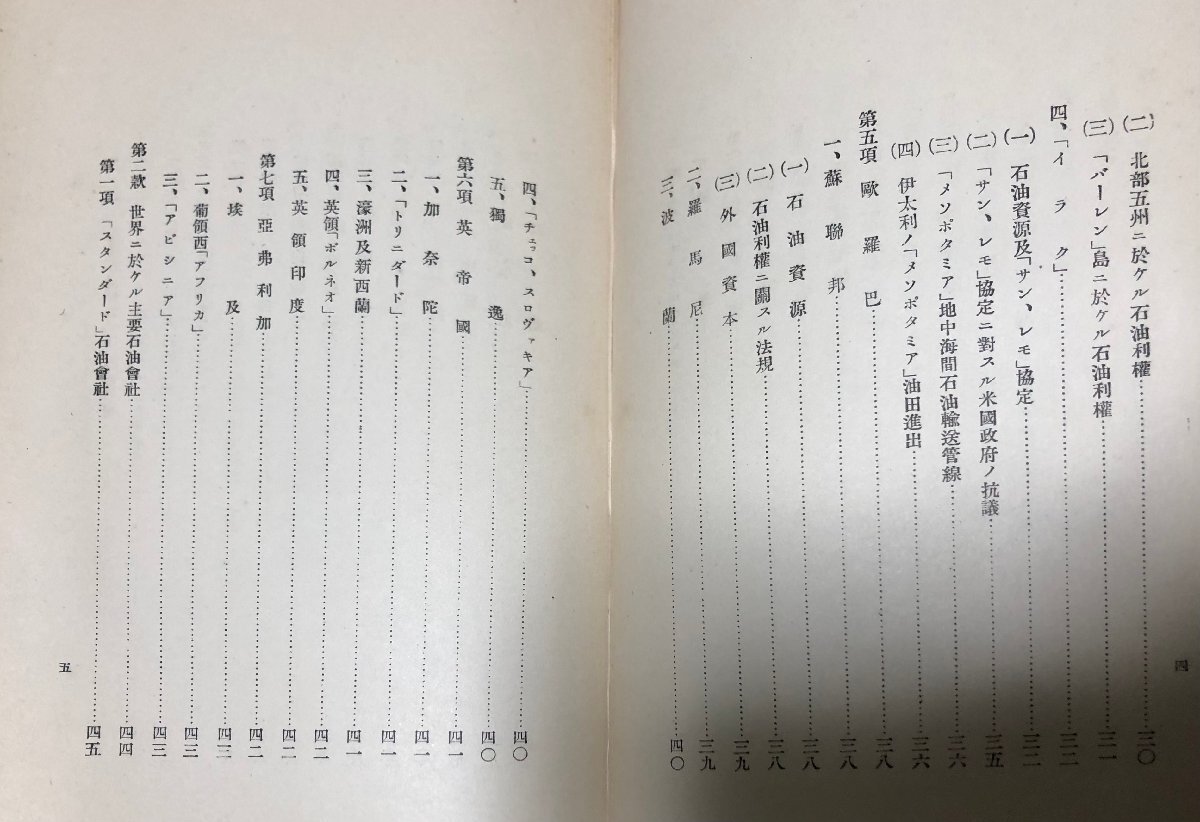 (二) 北部五州ニ於ケル石油利權……三〇
(三) 「バーレン」島ニ於ケル石油利權……三一
四、「イラク」……三二
(一) 石油資源及「サン、レモ」協定……三二
(二) 「サン、レモ」協定ニ對スル米國政府ノ抗議……三五
(三) 「メソポタミア」地中海間石油輸送管線……三六
(四) 伊太利ノ「メソポタミア」油田進出……三六
第五項 歐羅巴……三八
一、蘇聯邦……三八
(一) 石油資源……三八
(二) 石油利權ニ關スル法規……三八
(三) 外國資本……三九
二、羅馬尼……三九
三、波蘭……四〇
四
四、「チェッコ、スロヴァキア」……四〇
五、獨逸……四〇
第六項 英帝國……四一
一、加奈陀……四一
二、「トリニダード」……四一
三、濠洲及新西蘭……四一
四、英領「ボルネオ」……四二
五、英領印度……四二
第七項 亞弗利加……四二
一、埃及……四三
二、葡領西「アフリカ」……四三
三、「アビシニア」……四三
第二款 世界ニ於ケル主要石油會社……四四
第一項 「スタンダード」石油會社……四五
五